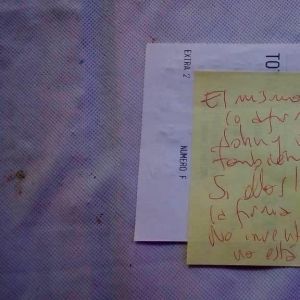 TO
EXTRA 2
NUMERO F
El mismo
lo afir
John y
también
Si ellos
la firma
No invent
no está